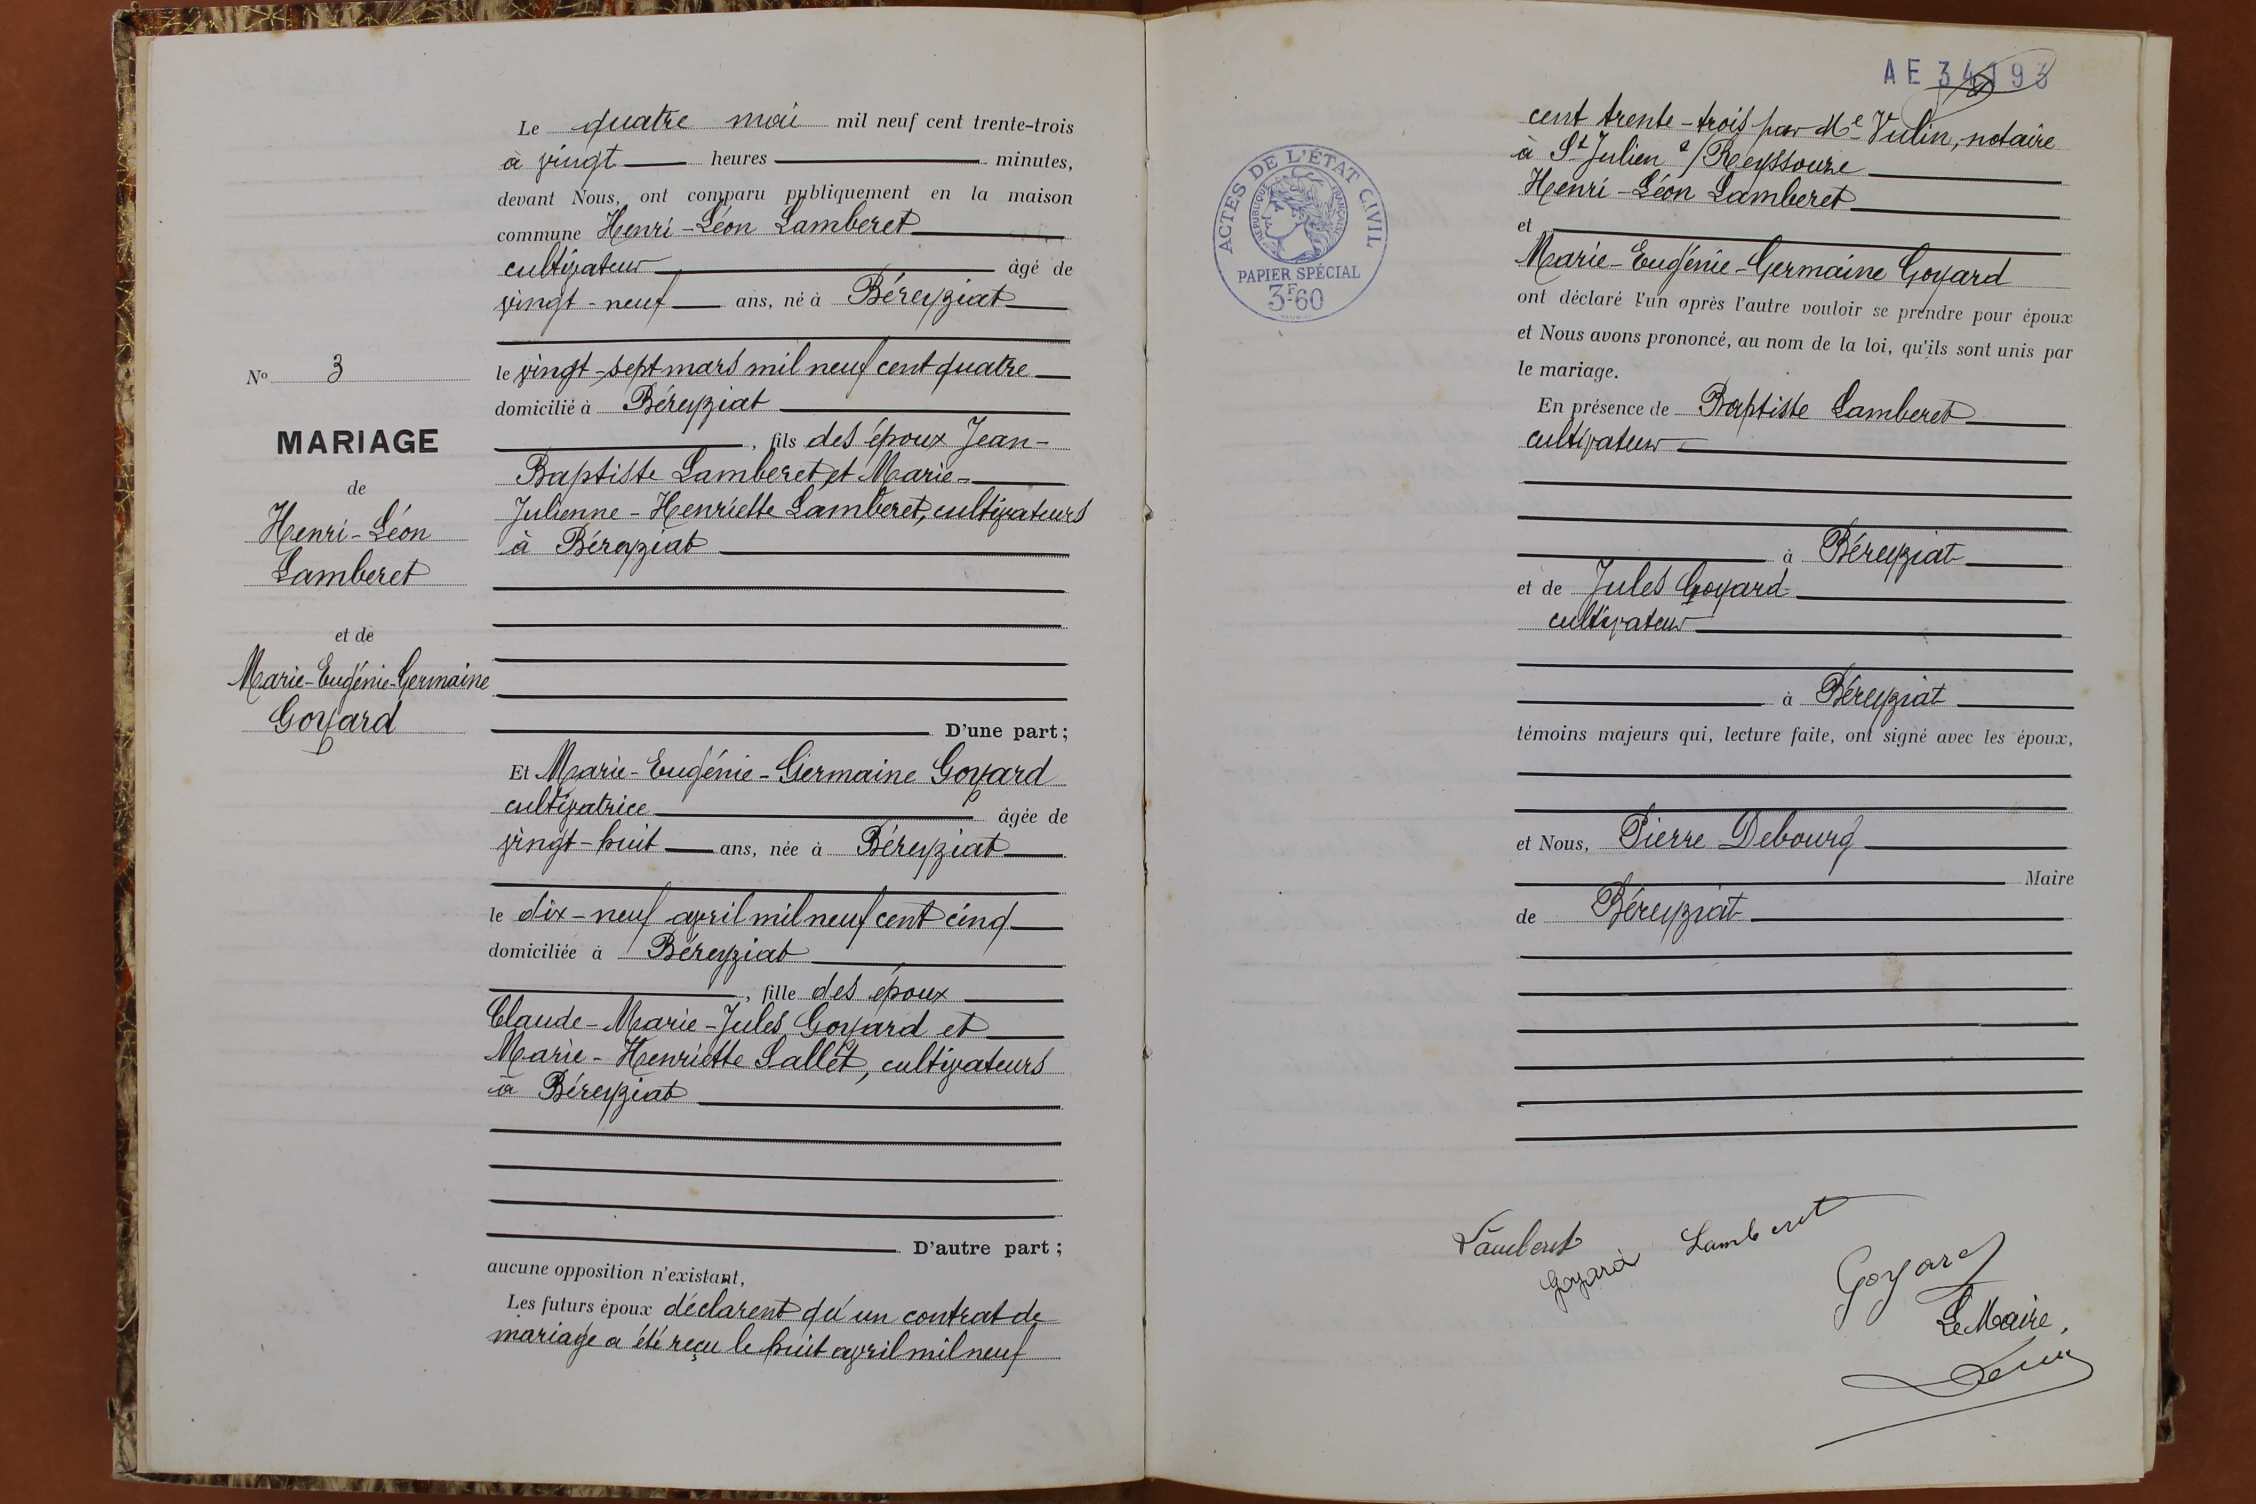 Le quatre mai mil neuf cent trente-trois
à vingt heures minutes,
devant Nous, ont comparu publiquement en la maison
commune Henri-Léon Lamberet
cultivateur âgé de
vingt-neuf ans, né à Béreyziat
le vingt-sept mars mil neuf cent quatre
domicilié à Béreyziat
, fils des époux Jean-
Baptiste Lamberet et Marie-
Julienne-Henriette Lamberet, cultivateurs
à Béreyziat
D'une part;
Et Marie-Eugénie-Germaine Goyard
cultivatrice âgée de
vingt-huit ans, née à Béreyziat
le dix-neuf avril mil neuf cent cinq
domiciliée à Béreyziat
, fille des époux
Claude-Marie-Jules Goyard et
Marie-Henriette Sallet, cultivateurs
à Béreyziat
D'autre part;
aucune opposition n'existant,
Les futurs époux déclarent qu'un contrat de
mariage a été reçu le huit avril mil neuf
No 3
MARIAGE
de
Henri-Léon
Lamberet
et de
Marie-Eugénie-Germaine
Goyard
AE 34193
cent trente-trois par Me Vulin, notaire
à St Julien s/Reyssouze
Henri-Léon Lamberet
et
Marie-Eugénie-Germaine Goyard
ont déclaré l'un après l'autre vouloir se prendre pour époux
et Nous avons prononcé, au nom de la loi, qu'ils sont unis par
le mariage.
En présence de Baptiste Lamberet
cultivateur
à Béreyziat
et de Jules Goyard
cultivateur
à Béreyziat
témoins majeurs qui, lecture faite, ont signé avec les époux,
et Nous, Pierre Debourg
Maire
de Béreyziat
ACTES DE L'ÉTAT CIVIL
RÉPUBLIQUE FRANÇAISE
PAPIER SPÉCIAL
3F60
Lamberet
Goyard
Lamberet
Goyard
Le Maire,